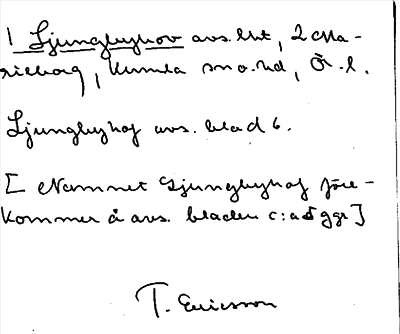 1 Ljungbyhov avs. lht, 2 Ma-
rieborg, Kumla sn o. hd, Ö.l.
Ljungbyhof avs. blad 6.
[Namnet Ljungbyhof före-
kommer å avs. bladen c:a 5 ggr]
T. Ericsson